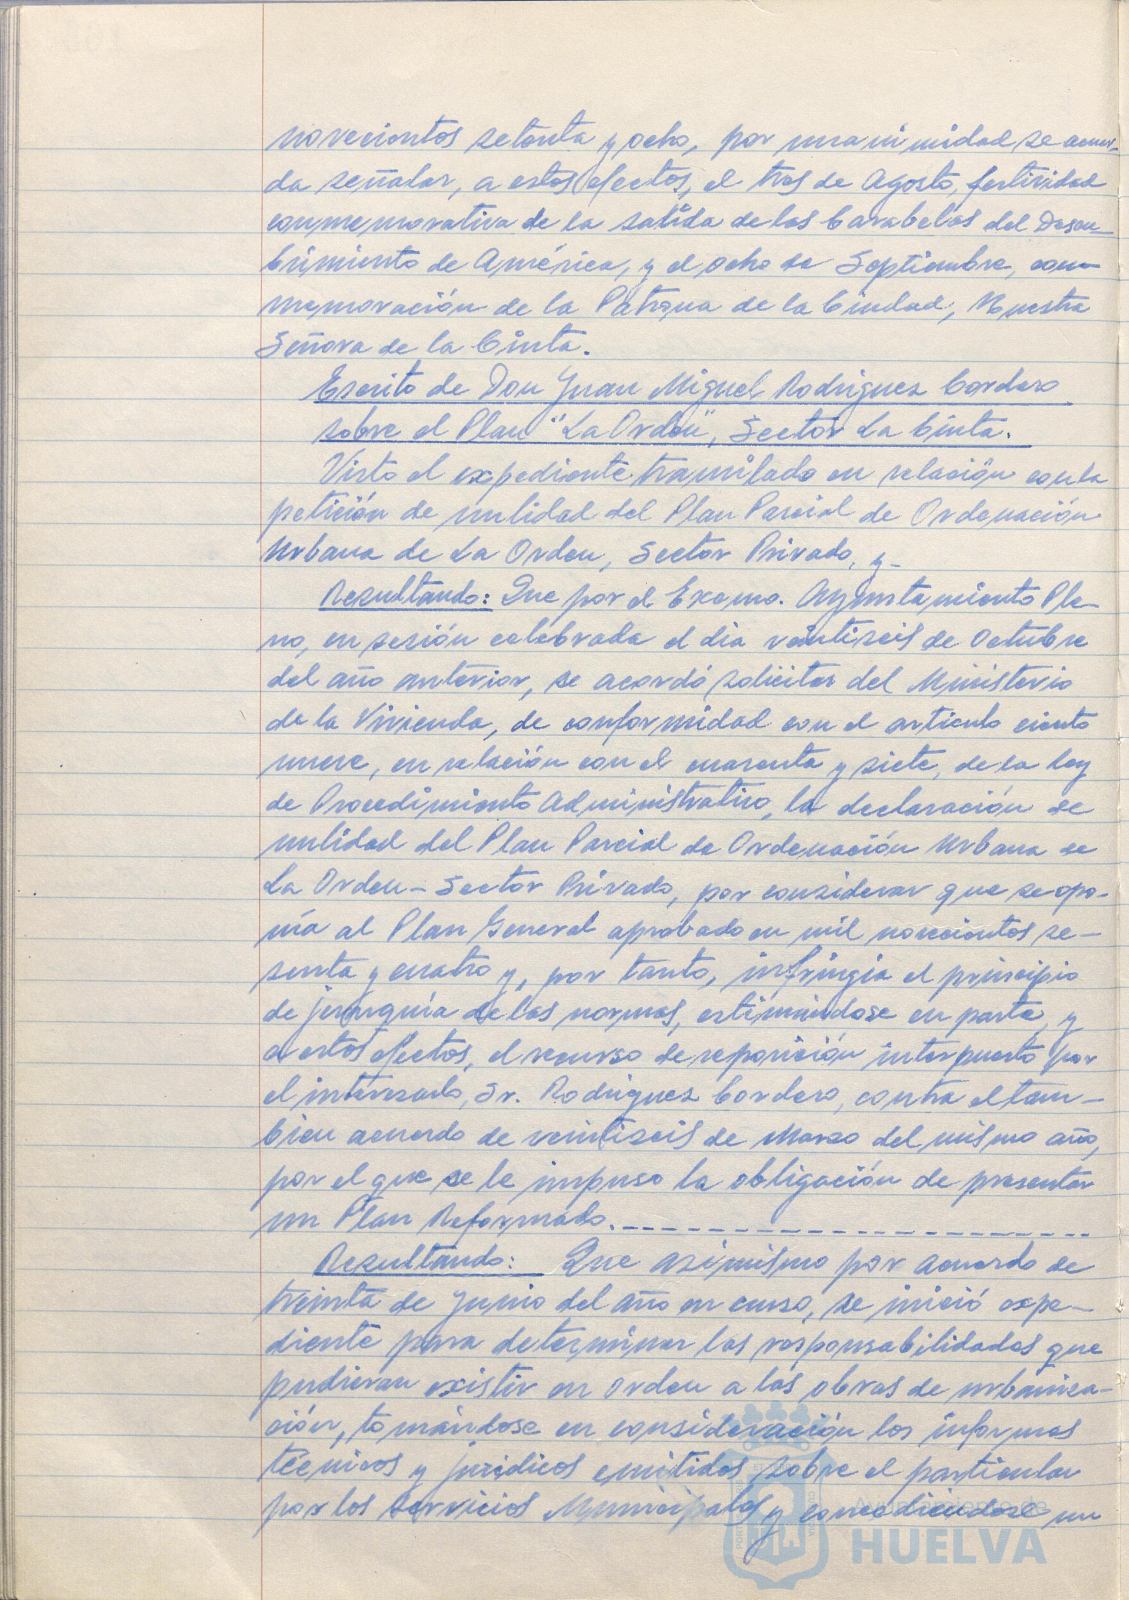 novecientos setenta y ocho, por unanimidad se acuer-
da señalar, a estos efectos, el tres de Agosto, festividad
conmemorativa de la salida de las Carabelas del Descu-
brimiento de América, y el ocho de Septiembre, con-
memoración de la Patrona de la Ciudad, Nuestra
Señora de la Cinta.
Escrito de Don Juan Miguel Rodríguez Cordero
sobre el Plan "La Orden", Sector La Cinta.
Visto el expediente tramitado en relación con la
petición de nulidad del Plan Parcial de Ordenación
Urbana de La Orden, Sector Privado, y-
Resultando: Que por el Excmo. Ayuntamiento Ple-
no, en sesión celebrada el día veintiseis de Octubre
del año anterior, se acordó solicitar del Ministerio
de la Vivienda, de conformidad con el artículo ciento
nueve, en relación con el cuarenta y siete, de la ley
de Procedimiento Administrativo, la declaración de
nulidad del Plan Parcial de Ordenación Urbana de
La Orden - Sector Privado, por considerar que se opo-
nía al Plan General aprobado en mil novecientos se-
senta y cuatro y, por tanto, infringía el principio
de jerarquía de las normas, estimándose en parte, y
a estos efectos, el recurso de reposición interpuesto por
el interesado, Sr. Rodríguez Cordero, contra el tam-
bien acuerdo de veintiseis de Marzo del mismo año,
por el que se le impuso la obligación de presentar
un Plan Reformado.
Resultando: Que asimismo por acuerdo de
treinta de Junio del año en curso, se inició expe-
diente para determinar las responsabilidades que
pudieran existir en orden a las obras de urbaniza-
ción, tomándose en consideración los informes
técnicos y jurídicos emitidos sobre el particular
por los servicios Municipales y concediendose un
Ayuntamiento de
HUELVA